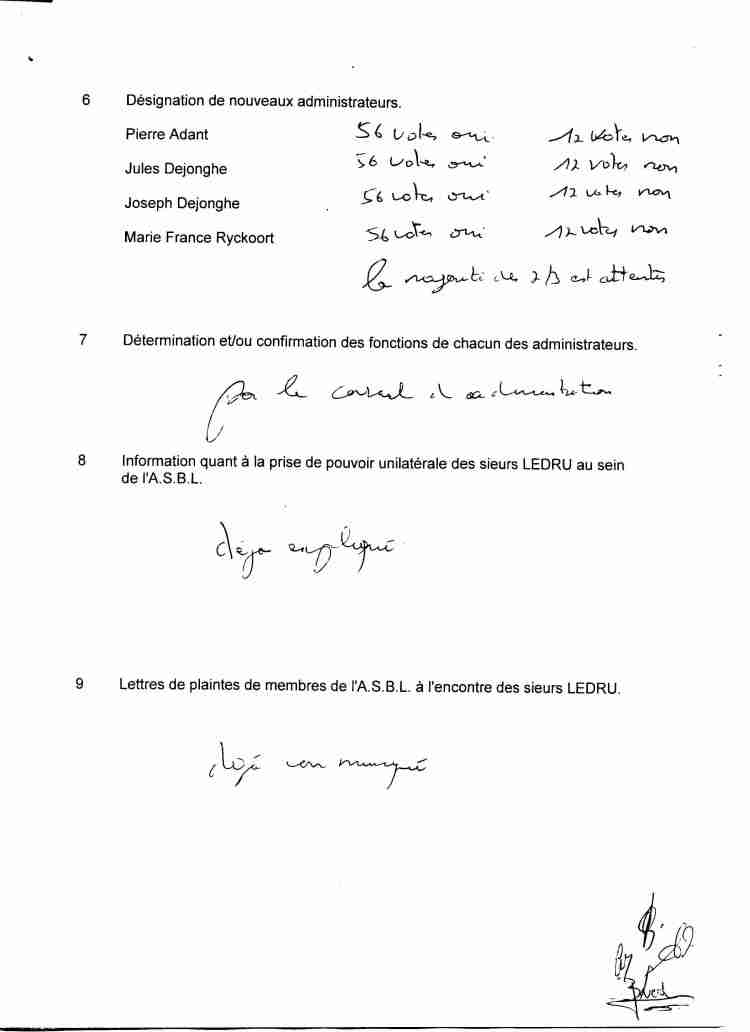 6 Désignation de nouveaux administrateurs.
Pierre Adant 56 votes oui 12 votes non
Jules Dejonghe 56 votes oui 12 votes non
Joseph Dejonghe 56 votes oui 12 votes non
Marie France Ryckoort 56 votes oui 12 votes non
la majorité des 2/3 est
7 Détermination et/ou confirmation des fonctions de chacun des administrateurs.
par le conseil d administration
8 Information quant à la prise de pouvoir unilatérale des sieurs LEDRU au sein
de l'A.S.B.L.
déjà expliqué
9 Lettres de plaintes de membres de l'A.S.B.L. à l'encontre des sieurs LEDRU.
déjà